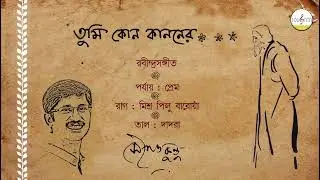 তুমি কোন কাননের
রবীন্দ্রসঙ্গীত
পর্যায় : প্রেম
রাগ : মিশ্র পিলু বারোয়াঁ
তাল : দাদরা